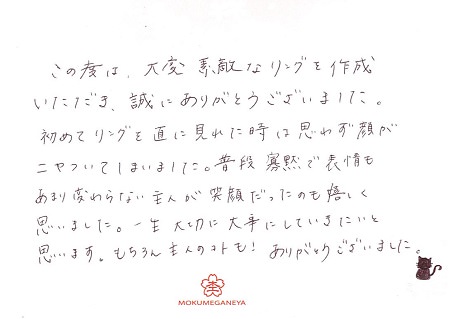 この度は、大変 素敵なリングを作成
いただき、誠にありがとうございました。
初めてリングを直に見れた時は思わず顔が
ニヤついてしまいました。普段 寡黙で表情も
あまり変わらない主人が笑顔だったのも嬉しく
思いました。一生 大切に大事にしていきたいと
思います。もちろん主人のコトも! ありがとうございました。
MOKUMEGANEYA